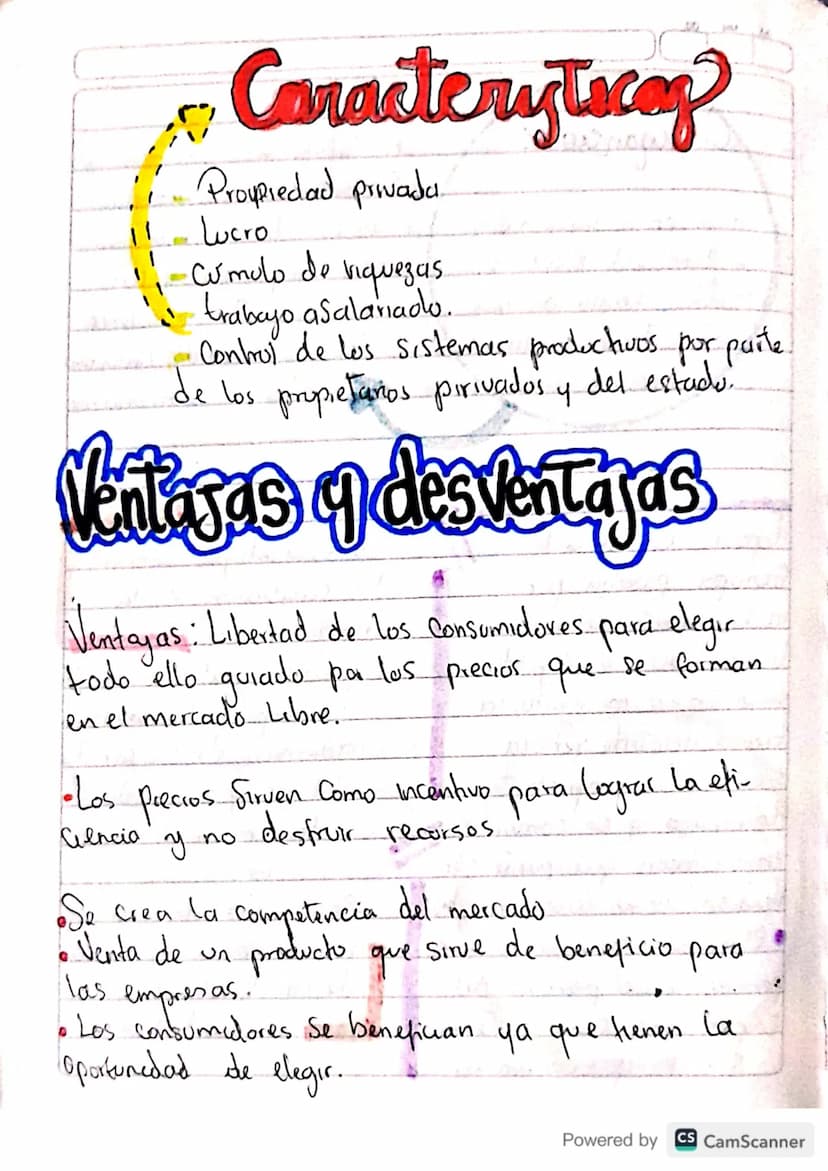 Caracterysticas
- Propiedad privada
- Lucro
- Cúmulo de riquezas
- trabajo asalariado.
- Control de los sistemas productivos por parte
de los propietarios pirivados y del estado.
Ventajas y desventajas
Ventajas: Libertad de los consumidores para elegir
todo ello guiado por los precios que se forman
en el mercado Libre.
• Los precios sirven como incentivo para lograr la efi-
ciencia y no destruir recursos
• Se crea la competencia del mercado
• Venta de un producto que sirve de beneficio para
las empresas.
• Los consumidores se benefician ya que tienen la
oportunidad de elegir.
Powered by CS CamScanner